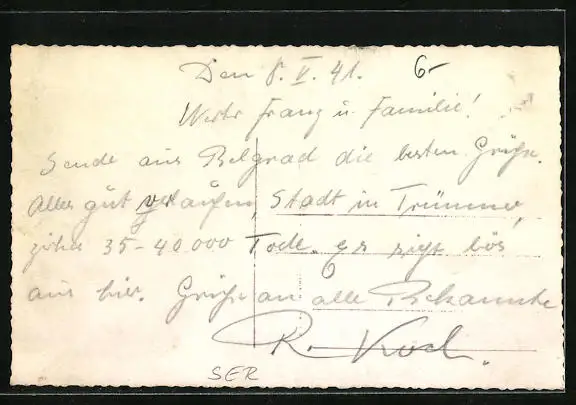 Den 8. V. 41. 6-
Werter Franz u. Familie!
Sende aus Belgrad die besten Grüße.
Alles gut verlaufen, Stadt in Trümmer,
35-40 000 Tode. es sieht bös
aus hier. Grüße an alle Bekannte
R. Koch.
SER